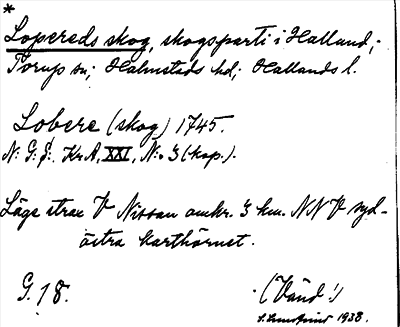 *
Lopereds skog, skogsparti i Halland,-
Torup sn; Halmstads hd; Hallands l.
Lobere (skog) 1745.
N: G: S:, Kr A, XXI, N:o 3 (kop.).
Läge strax V Nissan omkr. 3 km. NNV syd-
östra karthörnet.
G. 18.
(Vänd!)
1938.